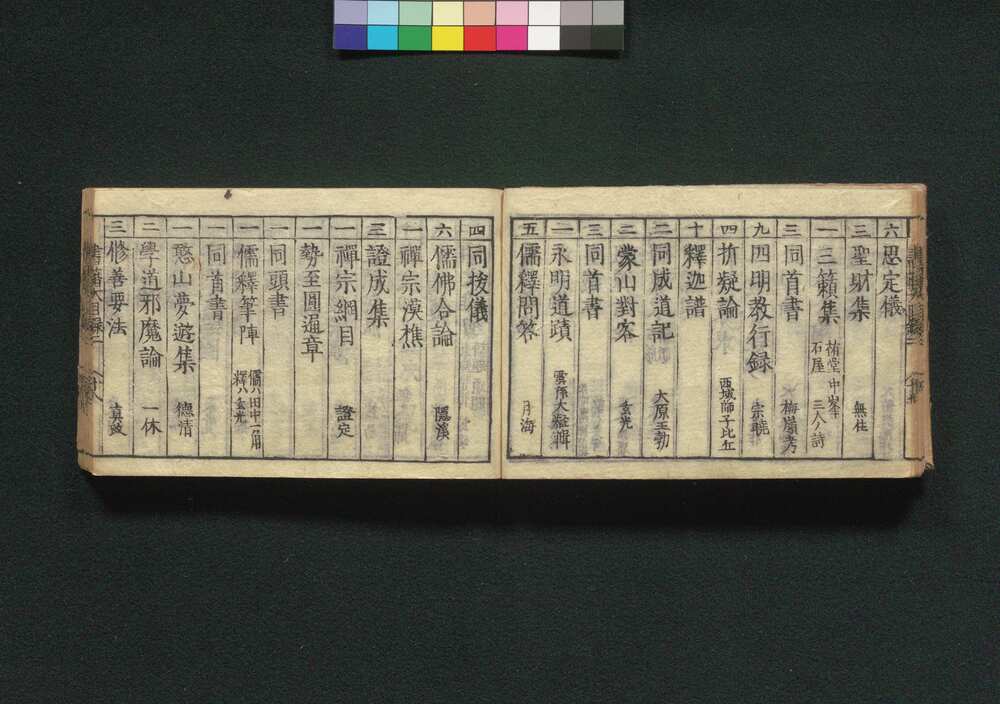 六 思定儀
三 聖財集 無住
一 三籟集 祐堂 中峯 石屋 三人ノ詩
三 同首書 梅嶺考
九 四明教行録 宗曉
四 折疑論 西域師子比丘
十 釋迦譜
二 同成道記 大原王勃
二 蒙山對客 玄光
三 同首書
二 永明道蹟 雲孫大壑輯
五 儒釋問答 月海
四 同後儀
六 儒佛合論 隱溪
一 禪宗漢樵
三 證成集
一 禪宗綱目 證定
一 勢至圓通章
一 同頭書
一 儒釋筆陣 儒ハ田中一角 釋ハ玄光
一 同首書
一 憨山夢遊集 德清
二 學道邪魔論 一休
三 修善要法 真敬